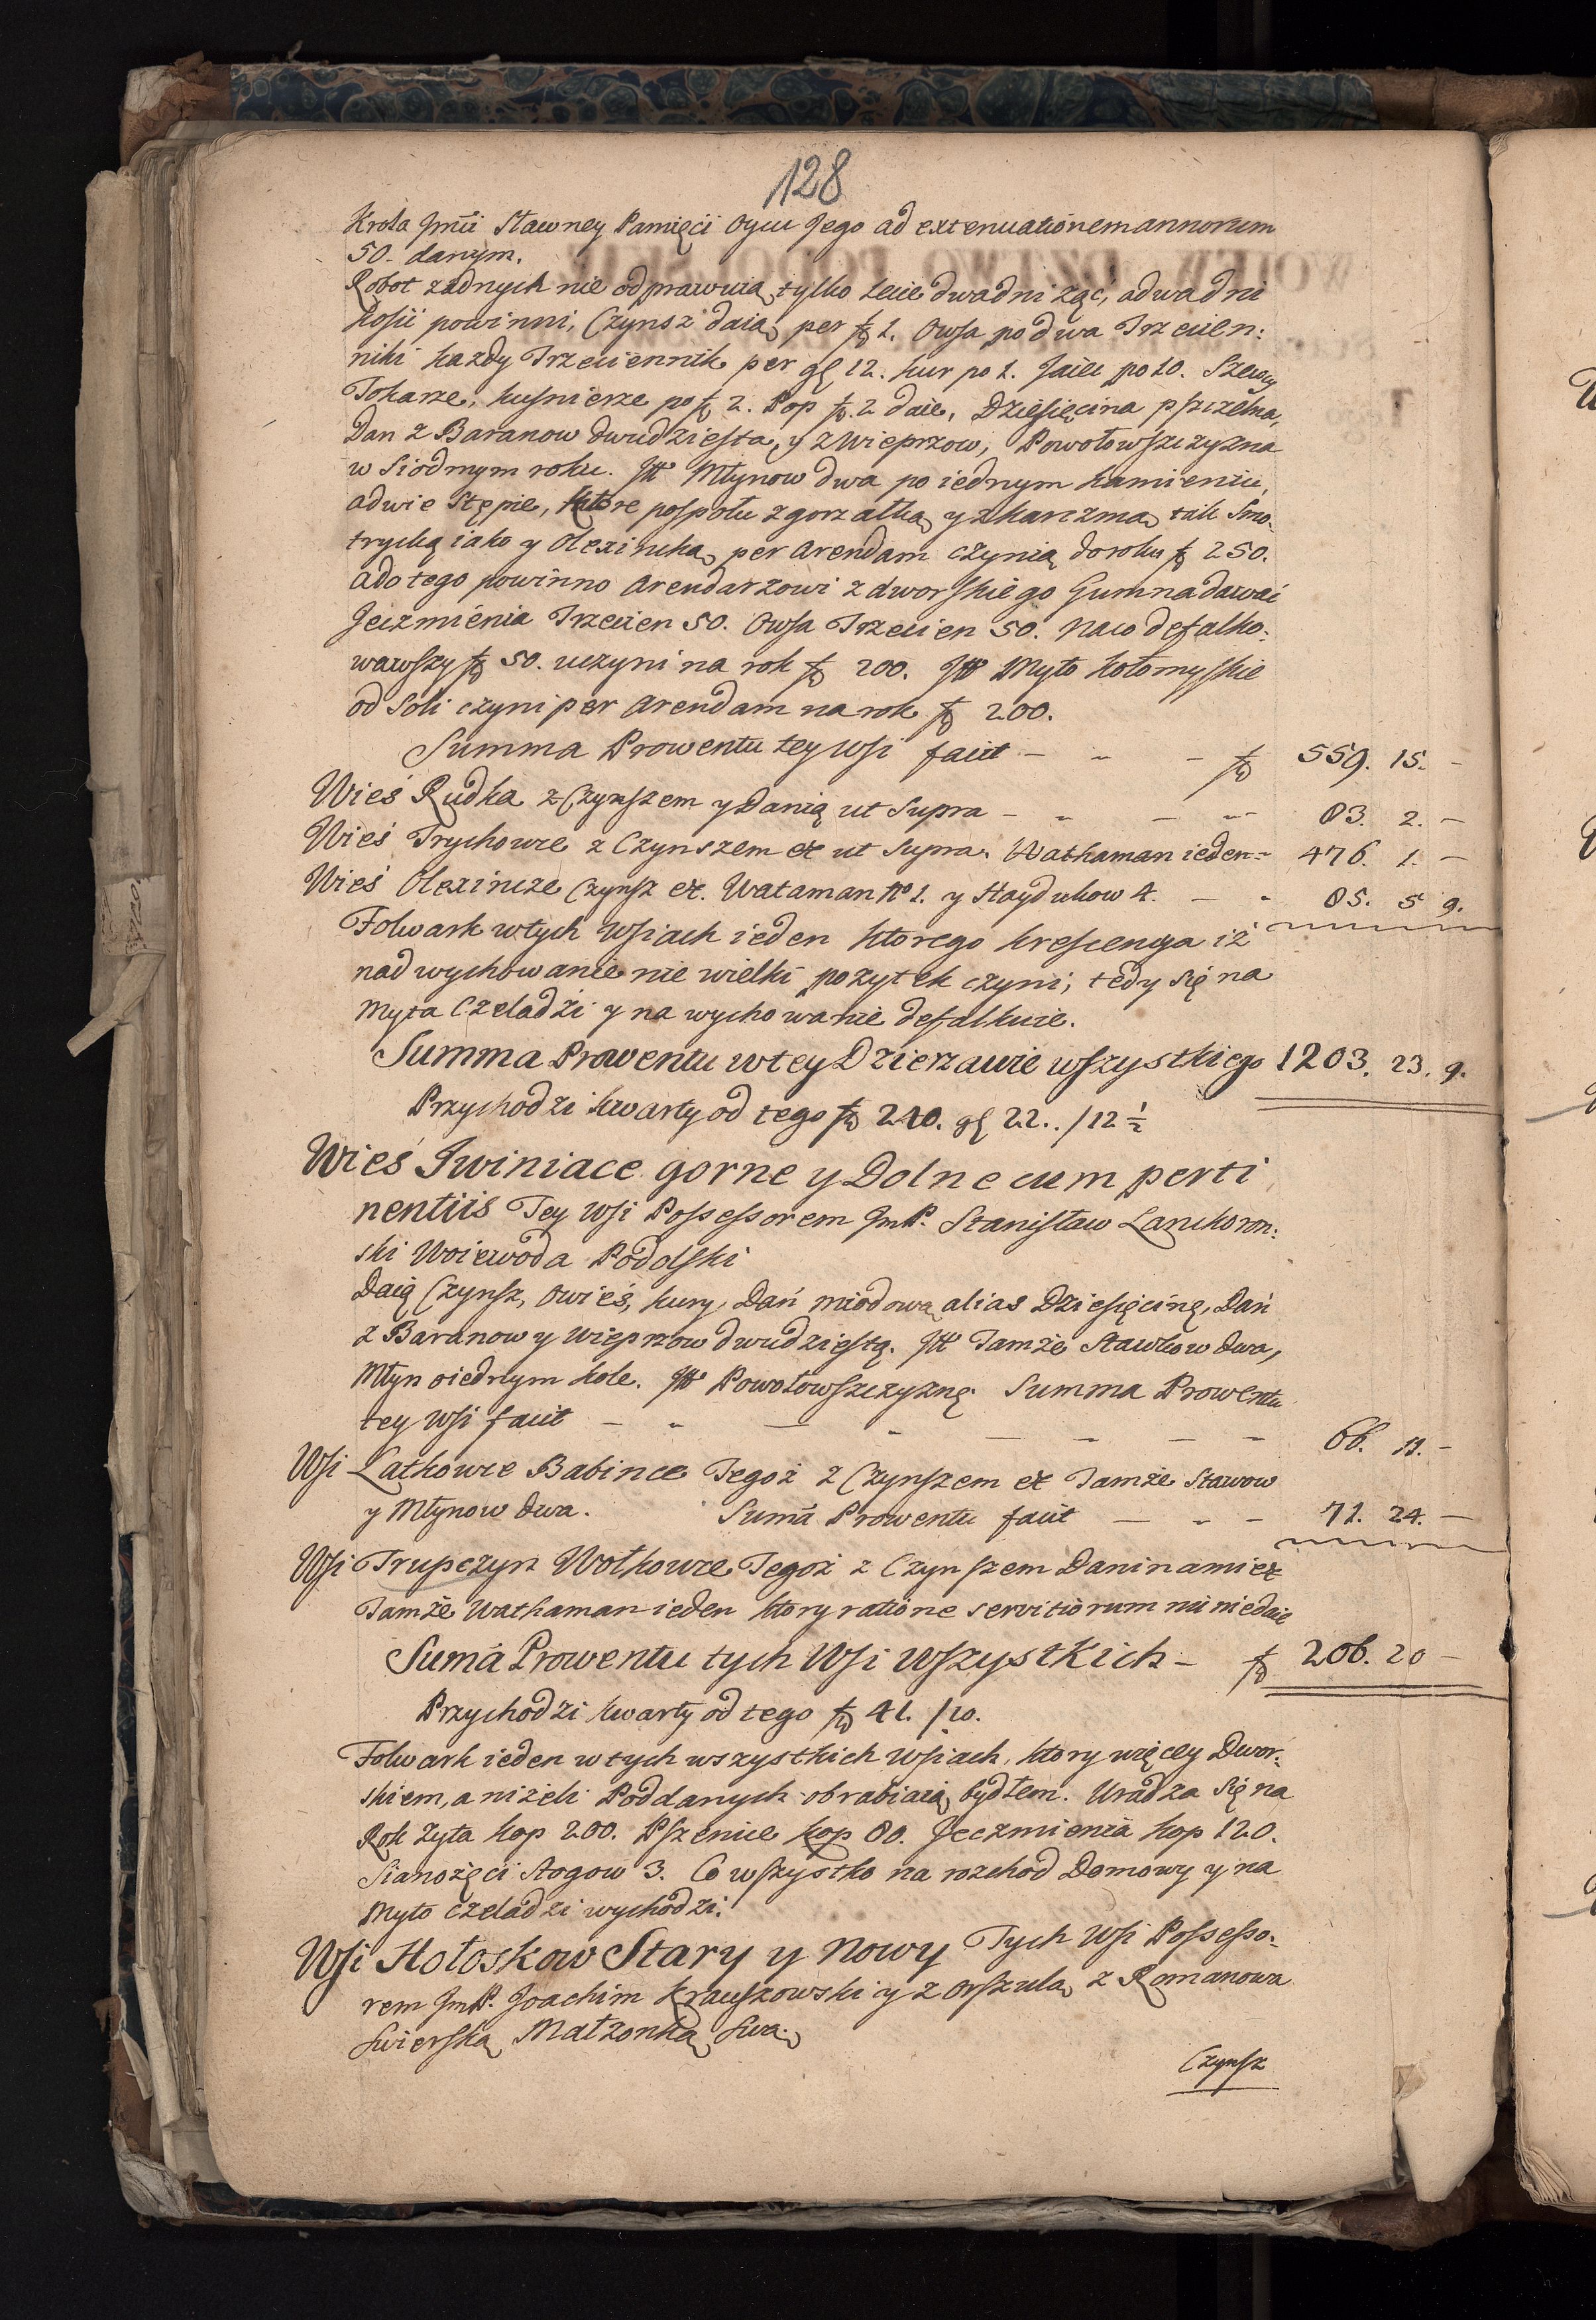 128
Krola Jmći Sławney Pamięći Oycu Jego ad extenuationem annorum
50. danym.
Robot zadnych nie odprawuią, tylko Lecie dwa dni ząć, a dwa dni
kosić powinni, Czynsz daią per fl 1. Owsa po dwa Trzecien:
niki kazdy Trzeciennik per gl 12. kur po 1. Jaiec po 10. Szewcy
Tokarze, kusnierze po fl 2. Pop fl. 2 daie, Dziesięcina pszczelna,
Dan z Baranow dwudziesta, y z Wieprzow, Powołowszczyzna
w Siodmym roku. Itt Młynow dwa po iednym kamieniu,
a dwie Stępie, ktore pospołu z gorzałką y z karczmą tak Smo-
trycką iako y Olexincką per Arendam czynią do roku fl 250.
a do tego powinno Arendarzowi z dworskiego Gumna dawać
Jeczmienia Trzecien 50. Owsa Trzecien 50. Na co defalko:
wawszy fl 50. uczyni na rok fl 200. Itt Myto kołomyskie
od Soli czyni per Arendam na rok fl 200.
Summa Prowentu tey Wsi facit - - - fl 559. 15. -
Wieś Rudka z Czynszem y Danią ut Supra - - - - 83. 2. -
Wieś Trychowce z Czynszem et ut Supra. Wathaman ieden - 476. 1. -
Wieś Olexince Czynsz et. Wataman No 1. y Haydukow 4. - - 85. 5 9.
Folwark w tych Wsiach ieden ktorego krescencya iż
nad wychowanie nie wielki pozytek czyni; tedy się na
Myta Czeladzi y na wychowanie defalkuie.
Summa Prowentu w tey Dzierzawie wszystkiego 1203. 23. 9.
Przychodzi kwarty od tego fl 240. gl 22. /12 1/2
Wieś Iwiniace gorne y Dolne cum perti
nentiis Tey Wsi Possessorem JmP. Stanisław Lanckoron:
ski Woiewoda Podolski
Daią Czynsz, Owieś, kury, Dań miodową alias Dziesięcinę, Dań
z Baranow y Wieprzow dwudziestą. Itt Tamże Stawkow dwa,
Młyn o iednym kole. Itt Powołowszczyznę. Summa Prowentu
tey Wsi facit - - - - - - - - 66. 11. -
Wsi Latkowce Babince Tegoż z Czynszem et Tamże Stawow
y Młynow dwa. Sumā Prowentu facit - - - 71. 24. -
Wsi Trupczyn Wołkowce Tegoż z Czynszem Daninami et
Tamże Wathaman ieden ktory ratione servitiorum nic niedaie
Sumā Prowentu tych Wsi Wszystkich - fl 206. 20 -
Przychodzi kwarty od tego fl 41. /10.
Folwark ieden w tych wszystkich Wsiach, ktory więcey Dwor:
skiem, a niżeli Poddanych obrabiaią bydłem. Uradza się na
Rok żyta kop 200. Pszenice kop 80. Jeczmienia kop 120.
Sianożęći Stogow 3. Co wszystko na rozchod Domowy y na
Myto Czeladzi wychodzi.
Wsi Hołoskow Stary y Nowy Tych Wsi Possesso-
rem JmP. Joachim Krauszowski y z Orszulą z Romanowa
Swierską Małzonką swą.
Czynsz